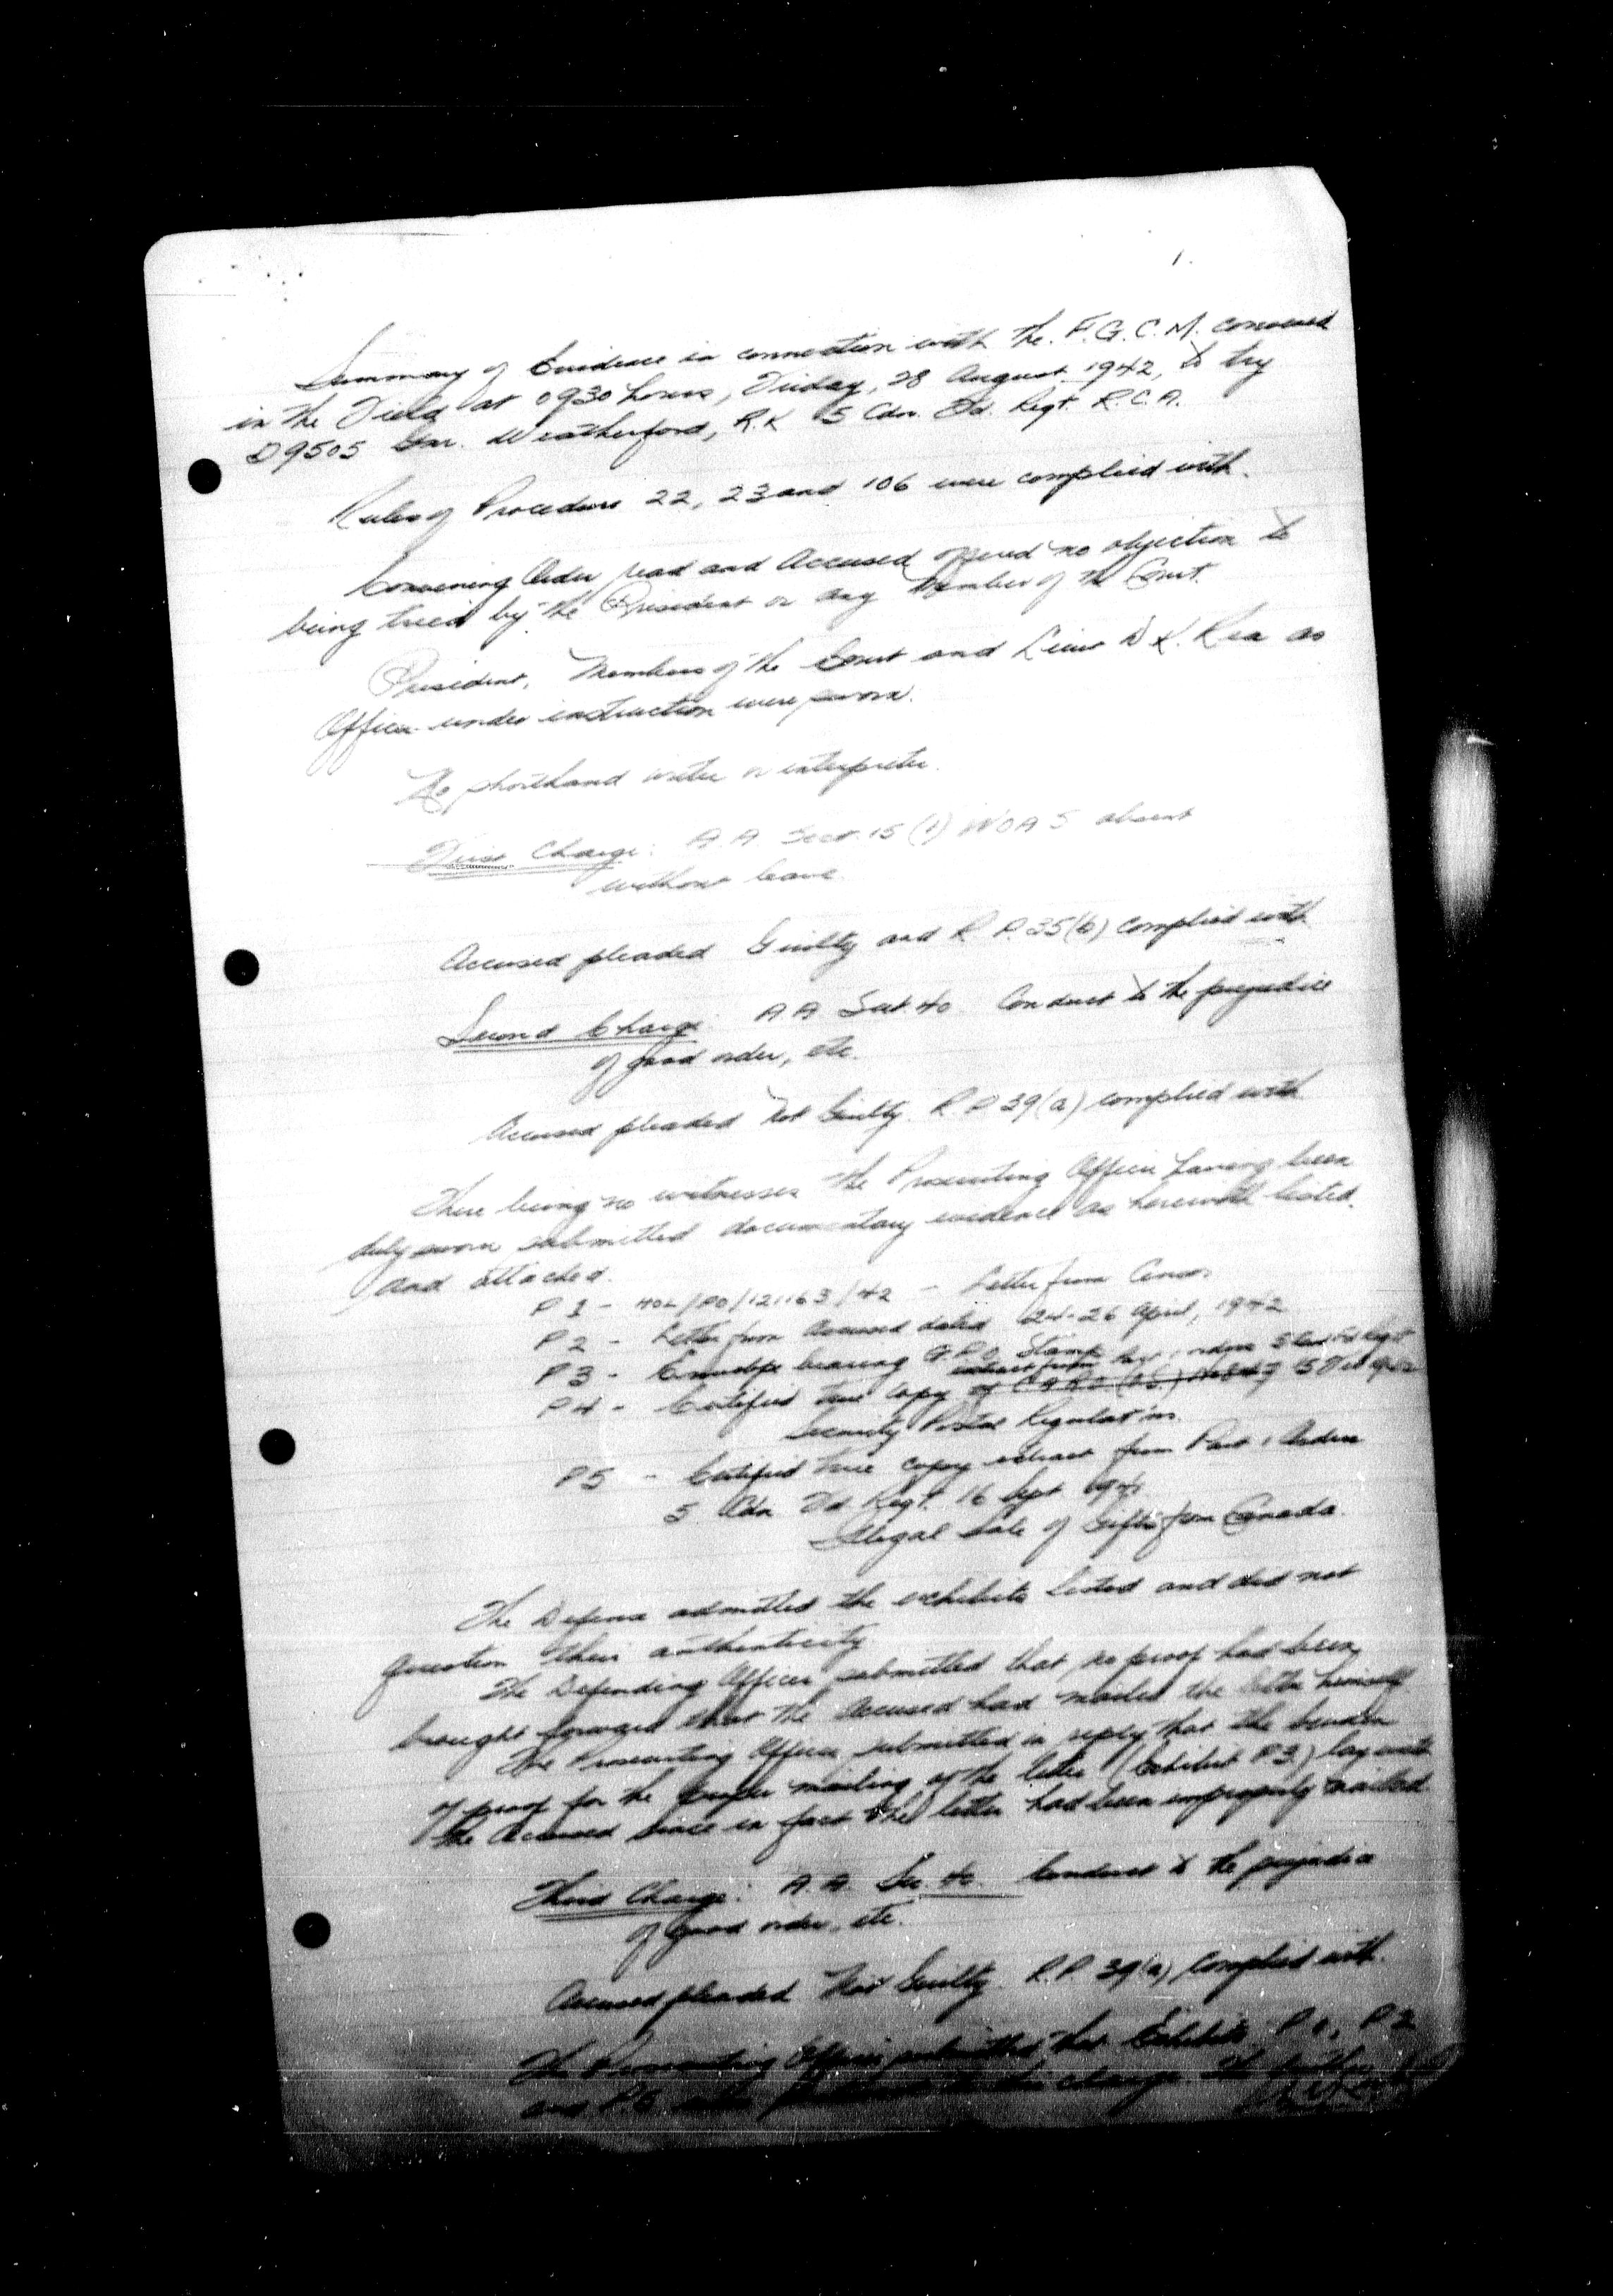 1.
Summary of Evidence in connection with the F.G.C.M. convened
in the Field at 0930 hours, Friday, 28 August 1942, to try
D9505 Gnr. Weatherford, R.K 5 Cdn. Fd. Regt. R.C.A.
Rules of Procedure 22, 23 and 106 were complied with.
Convening Order read and Accused offered no objection to
being tried by the President or any Member of the Court.
President, Members of the Court and Lieut D K. Rea as
Officer under instruction were sworn.
No shorthand writer or interpreter.
First Charge: A.A. Sect. 15 (1) WOAS absent
without leave.
Accused pleaded Guilty and R.P. 35(b) complied with
Second Charge A A Sect 40 Conduct to the prejudice
of good order, etc.
Accused pleaded Not Guilty. R.P 39(a) complied with
There being no witnesses the Prosecuting Officer having been
duly sworn submitted documentary evidence as herewith listed
and attached.
P 1 - HOL/PO/121163/42 - Letter from Censor
P 2 - Letter from Accused dated 24-26 April, 1942
P 3 - Envelope bearing G.P.O. Stamp
P 4 - Certified true copy extract from Part 1 orders 5 Cdn Fd Regt
Security Postal Regulations.
P5 - Certified true copy extract from Part 1 Orders
5 Cdn Fd Regt. 16 Sept 1941
Illegal Sale of Gifts from Canada.
The Defense admitted the exhibits listed and did not
question their authenticity
The Defending Officer submitted that no proof had been
brought forward that the Accused had mailed the letter himself.
The Prosecuting Officer submitted in reply that the burden
of proof for the proper mailing of the letter (Exhibit P3) lay with
the Accused since in fact the letter had been improperly mailed
Third Charge: A.A. Sec. 40 Conduct to the prejudice
of good order, etc.
Accused pleaded Not Guilty. R.P. 39(a) complied with.
The Prosecuting Officer submitted that Exhibits P1, P2
and P5 to this charge The